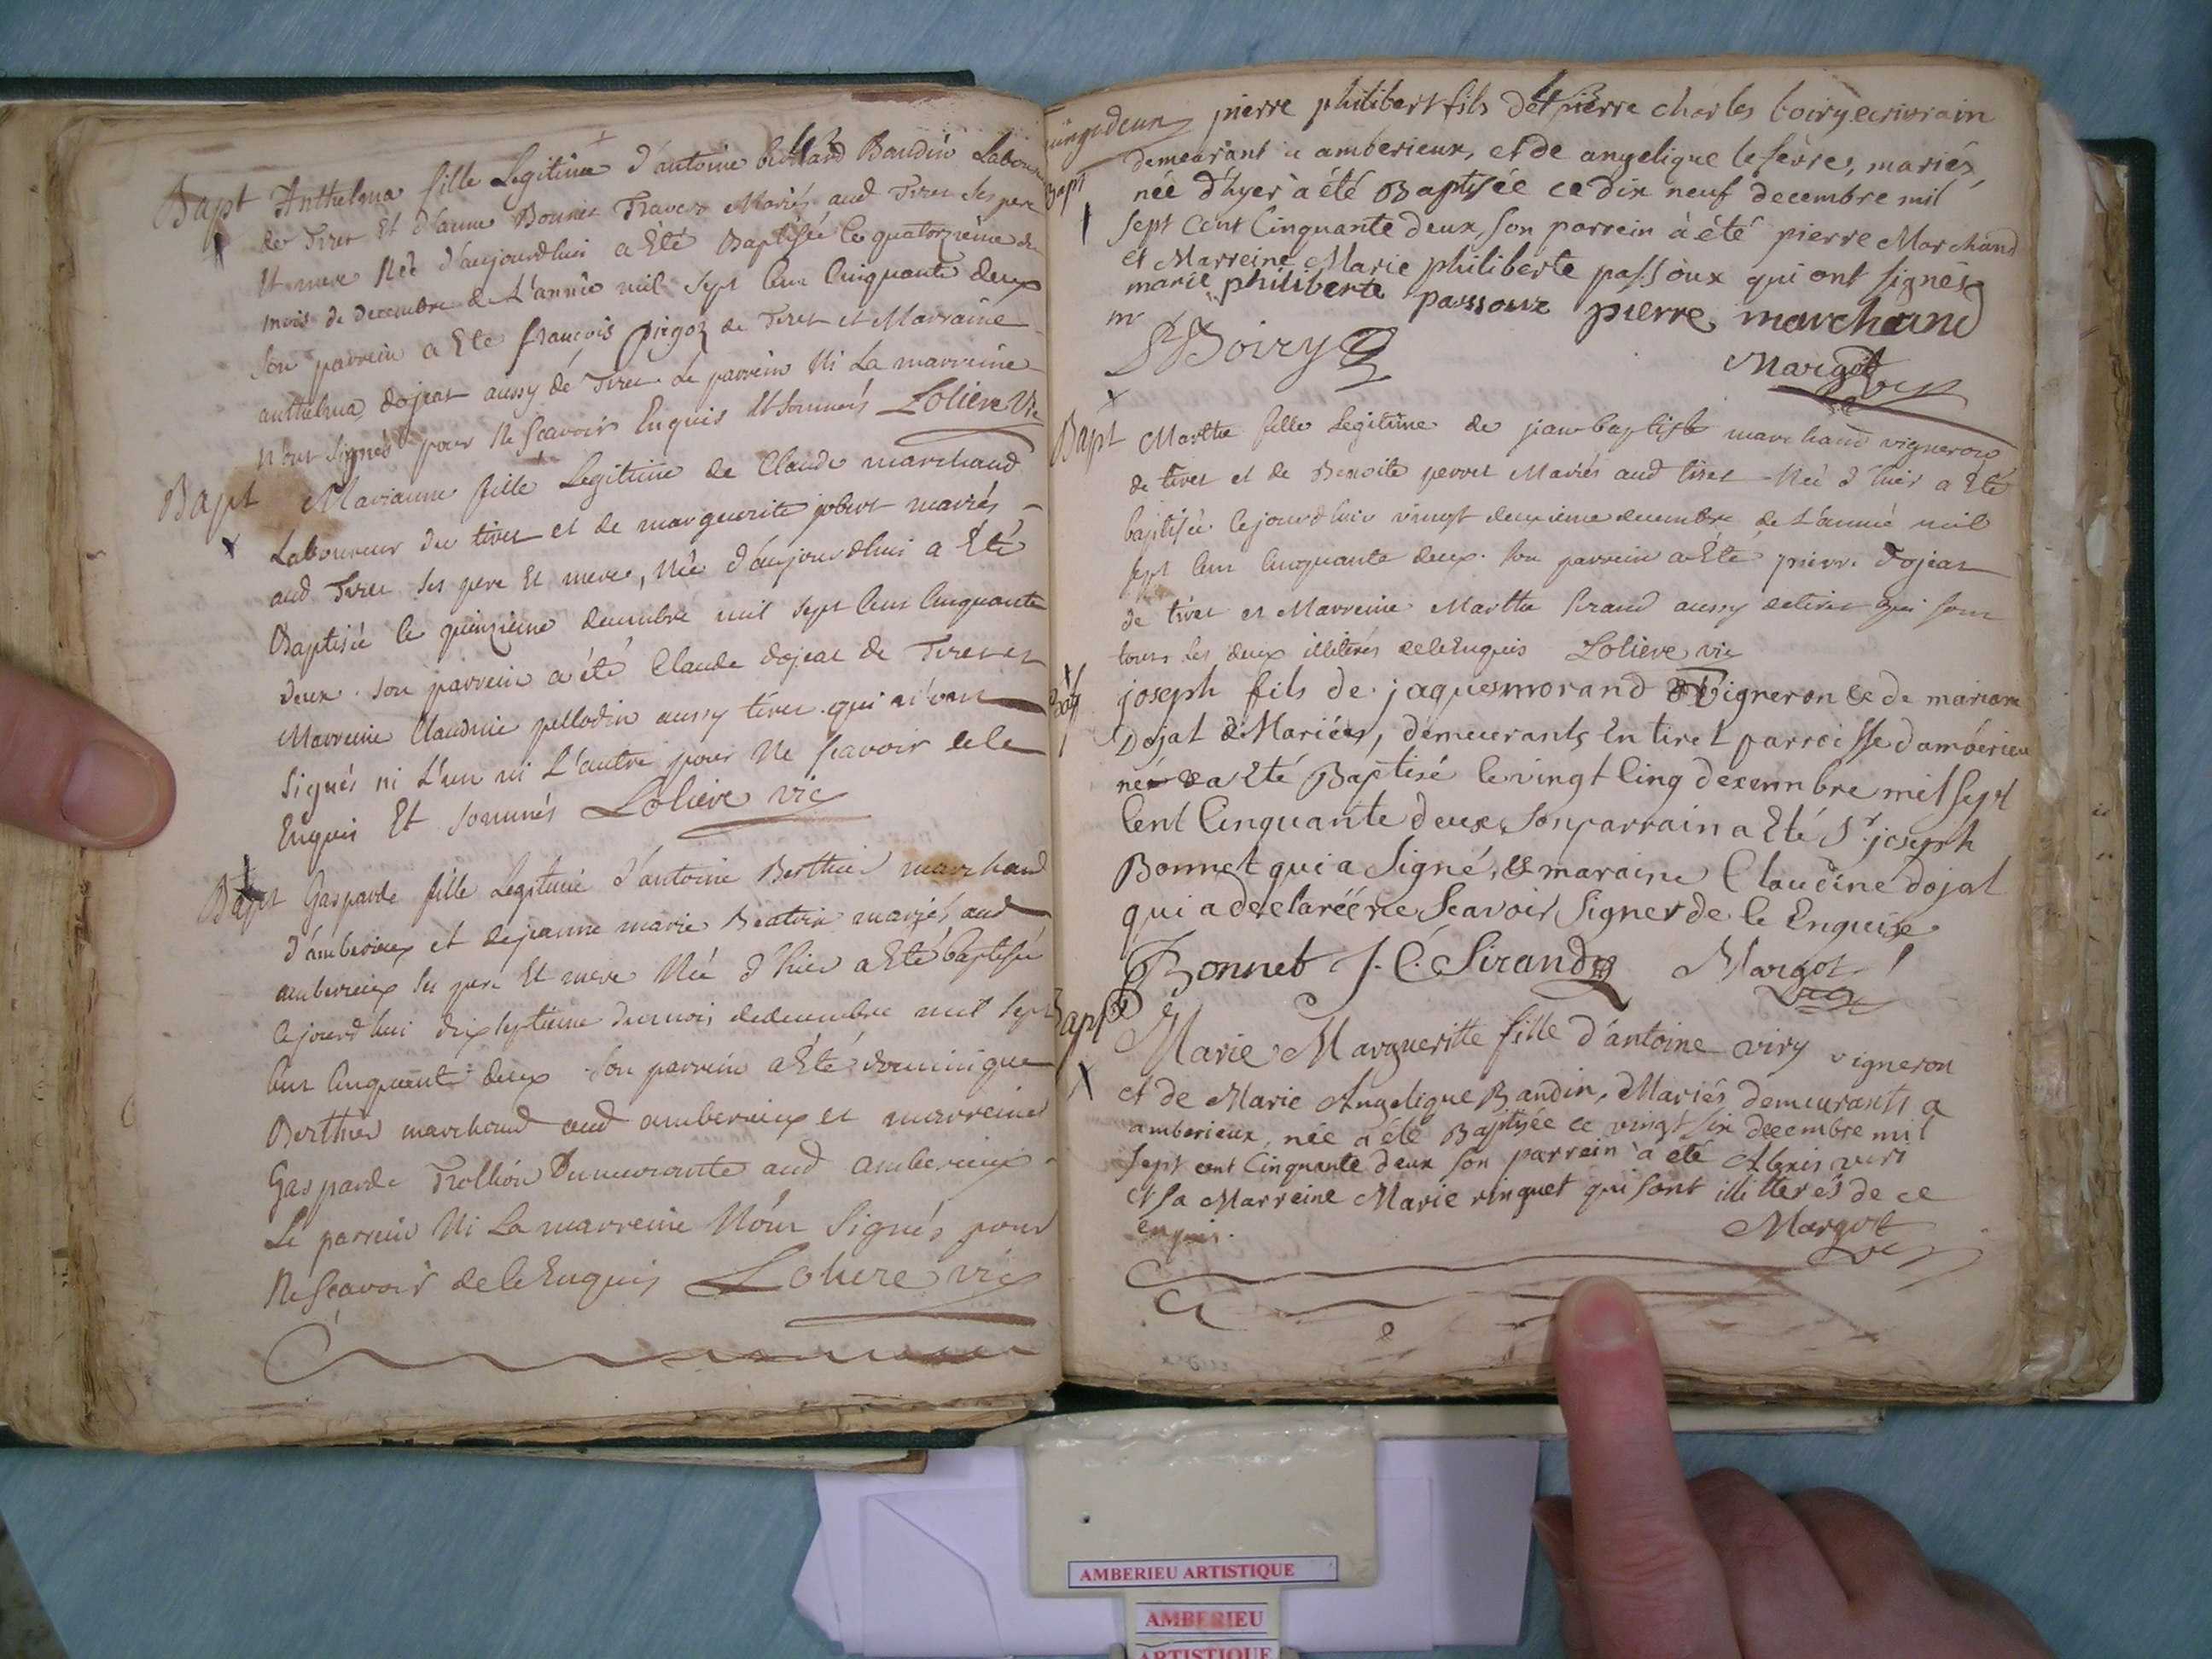 Bapt Anthelma fille Legitime d'antoine Baudin Labour
de Tiret Et d'anne Bonnet Travers Mariés aud Tiret ses pere
Et mere Née d'aujourdhui a Eté Baptisée le quatorzieme du
mois de decembre de L'année mil sept Cent Cinquante deux
Son parrein a Eté françois pingoz de Tiret et Marraine
anthelma dojeat aussy de Tiret Le parrein Ni La marreine
N'ont signés pour Ne Scavoir Enquis Et Sommés Loliere Vic
Bapt Marianne fille Legitime de Claude marchand
Laboureur du tiret et de marguerite jobert mariés
aud Tiret ses pere Et mere, Née d'aujourdhui a Eté
Baptisée le quinzieme decembre mil sept Cent Cinquante
deux. son parrein a été Claude dojeat de Tiret et
Marreine Claudine pellodin aussy tiret qui n'ont
Signés ni L'un ni L'autre pour Ne scavoir de ce
Enquis Et Sommés Loliere vic
Bapt Gasparde fille Legitime d'antoine Berthier marchand
d'amberieux et de jeanne marie Beatrix mariés aud
amberieux ses pere Et mere Née d'hier a Eté baptisée
cejourdhui dix septieme du mois de decembre mil sept
Cent Cinquante deux. Son parrein a Eté dominique
Berthier marchand aud amberieux et marreine
Gasparde Trollion Demeurante aud amberieux
Le parrein Ni La marreine N'ont Signés pour
Ne Scavoir de ce Enquis Loliere vic
pierre philibert fils de pierre charles boiry ecrivain
demeurant a amberieux, et de angelique lefevre, mariés,
née d'hyer à été Baptisée ce dix neuf decembre mil
sept cent Cinquante deux, son parrein à été pierre Marchand
et Marreine Marie philiberte passoux qui ont signés
marie philiberte passoux pierre marchand
Boiry
Margot
vic
Bapt Marthe fille Legitime de jean baptiste marchand vigneron
de tiret et de Benoite perret Mariés aud tiret Née d'hier a Eté
baptisée cejourdhuis vingt deuxieme decembre de L'année mil
sept Cent Cinquante deux. Son parrein a Eté pierre dojeat
de tiret et Marreine Marthe Sirand aussy de tiret qui sont
tous les deux illiterés de ce Enquis Loliere vic
Bap joseph fils de jaques morand Vigneron & de mariane
Dojat Mariés, demeurants En tiret parroisse d'amberieu
né a Eté Baptisé le vingt Cinq decembre mil sept
Cent Cinquante deux, Son parrain a Eté Sr. joseph
Bonnet qui a Signé, & maraine Claudine dojat
qui a declaréé ne Scavoir Signer de ce Enquise
Bonnet J. C. Sirand Margot
vic
Bapt Marie Margueritte fille d'antoine viry vigneron
et de Marie Angelique Baudin, Mariés demeurants a
amberieux, née a été Baptisée ce vingt six decembre mil
sept cent Cinquante deux son parrein à été Alexis
et sa Marreine Marie vinguet qui sont illitterés de ce
enquis. Margot
vic
AMBERIEU ARTISTIQUE
AMBERIEU
ARTISTIQUE